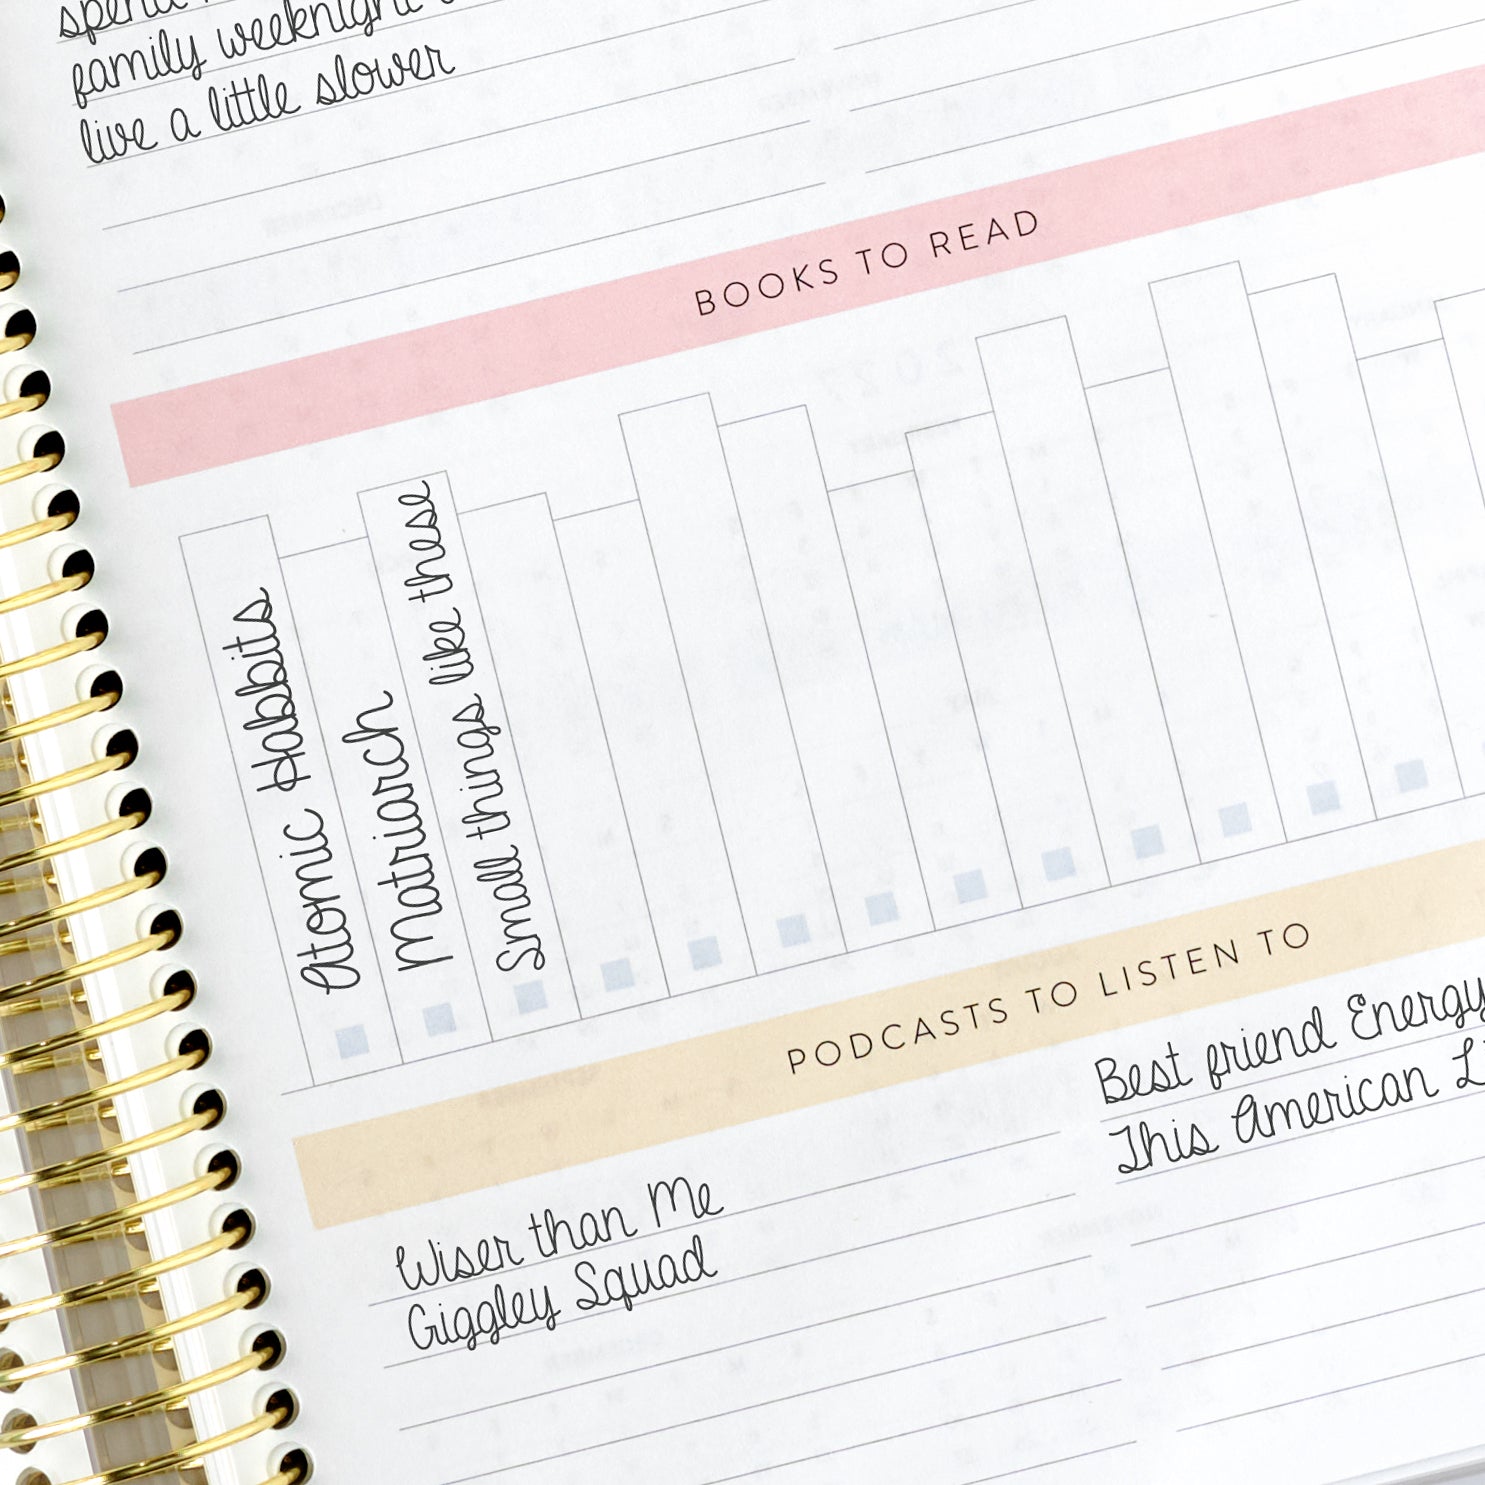 family weeknight
live a little slower
BOOKS TO READ
Atomic Habbits
Matriarch
Small things like these
PODCASTS TO LISTEN TO
Wiser than Me
Giggley Squad
Best friend Energy
This American